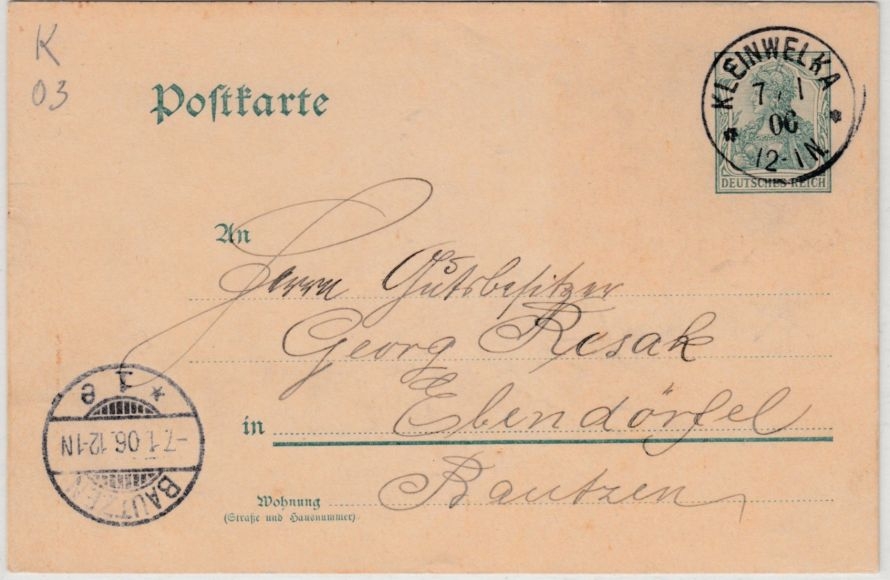 K
03
Postkarte
KLEINWELKA
7 1
06
12-1N
DEUTSCHES REICH
An
Herrn Gutsbesitzer
Georg Resak
in Ebendörfel
Bautzen
Wohnung
(Straße und Hausnummer)
BAUTZEN
-7.1.06.12-1N
* 1 e